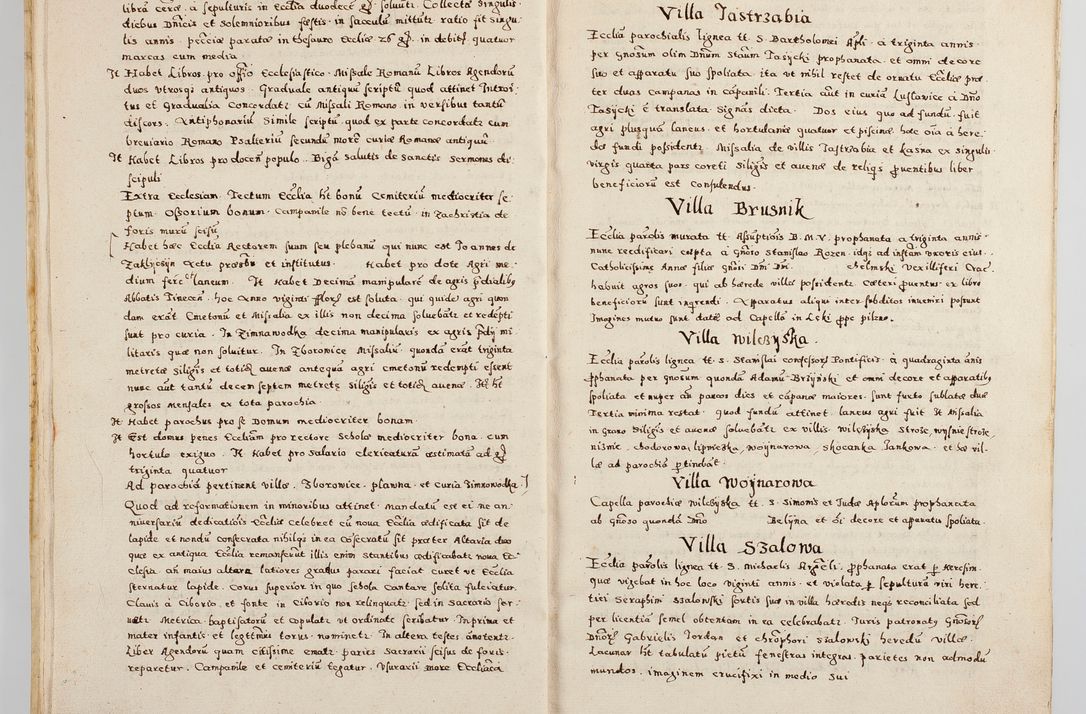 libra ceræ. à sepulturis in Ecclĩa duodece gr̃. soluũt. Collecta singulis
diebus Dnĩcis et Solemnioribus festis. in sacculũ mittitr̃. ratio fit singu
lis annis. pecciæ paratæ in thesauro Eccliæ 26 gr̃. in debitis quatuor
marcas cum media.
It Habet Libros. pro offĩo Ecclesiastico. Missale Romanũ Libros Agendorũ
duos utrosqʒ antiquos. Graduale antiquũ scriptũ quod attinet Introi
tus et Gradualia Concordatr̃. cũ Missali Romano. in versibus tantũ
discors. Antiphonariũ Simile scriptũ. quod ex parte concordatr̃ cum
breuiario Romano Psalteriũ secundũ morẽ curiæ Romanæ antiquũ.
It Habet Libros pro docen̄ populo. Biga salutis de Sanctis Sermones di
scipuli.
Extra Ecclesiam. Tectum Ecclĩa ht̃ bonũ Cemiteriũ mediocriter se
ptum. Ossorium bonum. Campanile nõ bene tectũ. in Zachristia de
foris murũ scisũ
Habet hæc Ecclĩa Rectorem suum seu plebanũ qui nunc est Joannes de
Zakliczyn Actu præsbr̃ et institutus. Habet pro dote Agri me
dium ferè laneum. It Habet Decimã manipularẽ de agris p̃dialibus
Abbatis Tinecen̄. hoc Anno viginti flor̃. est soluta. qui quidẽ agri quon
dam erãt Cmetonũ et Missalia ex illis non decima soluebatr̃ et redẽpti
sunt pro curia. In Zimnawodka decima manipularis ex agris p̃dij mi
litaris quæ non soluitur. In Zborowice Missaliũ. quondã erãt triginta
metretæ siligis et totidẽ auenæ antequã agri cmetonũ redempti essent
nunc aũt tantũ decem septem metretę siligis et totidẽ auenæ. It ht̃
grossos mensales ex tota parochia.
It Habet parochus pro se Domum mediocriter bonam.
It Est domus penes Ecclĩam pro rectore scholæ mediocriter bona. cum
hortulo exiguo. It Habet pro salario clericaturã æstimatã ad gr̃
triginta quatuor
Ad parochiã pertinent villæ. Zborowice. plawna. et curia Zimnowodka.
Quod ad reformationem in minoribus attinet. Mandatũ est ei ne an
niuersariũ dedicatiõis Ecclĩæ celebret cũ noua Ecclĩa ædificata sit de
lapide et nondũ consecrata nihilqʒ in ea cõsecratũ sit præter Altaria duo
quæ ex antiqua Ecclĩa remanserũt illis enim stantibus ædificabatr̃ noua Ec
clesia. an̄ maius altare latiores gradus parari faciat curet ut Ecclĩa
sternatur lapide. Corus superior in quo schola cantare solita fulciatur.
Clauis à Ciborio. et fonte in Ciborio non relinquatr̃. sed in sacrario ser
uetr̃. Metrica. baptisatorũ et copulatr̃ ut ordinatè scribatur. In prima et
mater infantis. et legitimus torus. nominetr̃. In altera testes ãnotentr̃.
Liber Agendorũ quam citissime ematr̃. paries sacrarii scisus de foris.
reparetur. Campanile et cemiteriũ tegatur. Vsurarii more Ecclĩaĩca
Villa Jastrzabia
Ecclĩa parochialis lignea tt. S. Bartholomei Apl̃i. à triginta annis.
per Gnõsum olim Dnũm Staũm Taszycki prophanata. et omni decore
suo et apparatu suo spoliata. ita vt nihil restet de ornatu Ecclĩæ præ
ter duas campanas in cãpanili. Tertia aũt in curiã Luslavice à Dnõ
Taszycki ẽ translata. Signãs dicta. Dos eius quo ad fundũ. fuit
agri plusquã laneus. et hortulaniæ quatuor et piscinæ. hæc oĩa à here
de fundi possidentr̃. Missalia de villis Jastrzabia et Kasna ex singulis
virgis quarta pars coreti siligis et auenæ de reliqs prouentibus liber
beneficiorũ est consulendus.
Villa Brusnik
Ecclĩa parolis murata tt. Assũptiõis B. M. V. prophanata a triginta annis
nunc reedificari cæpta à Gnõso Stanislao Rozen. idqʒ ad instam̃ vxoris eius.
Catholicissimæ Annæ filiæ Gnõsi Dnĩ Dnĩ. chelmski vexilliferi Crac̃.
habuit agros suos. qui ab hærede villæ possidentr̃. cæteri prouentus ex libro
beneficiorũ sunt inqrendi. Apparatus aliqui inter subditos inueniri possunt
Imagines multo sunt datæ ad Capellã in Lęki prope pilzno.
Villa Wilczyska.
Ecclĩa parolis lignea tt. S. Stanislai confessor̃ Pontificis. à quadraginta annis
prophanata per gnosum quondã Adamũ Brzyński et omni decore et apparatibus
spoliata et nuper an̄ paucos dies et cãpanæ maiores. sunt furto sublatæ duæ
Tertia minima restat. Quod fundũ attinet. laneus agri fuit It Missalia
in grano siligis et auenæ soluebatr̃ ex villis wilczyska strože, wyśnie strože,
nižnie, chodorowa, lipniczka, woynarowa, Skocanka Jankowa. et hæ vil-
læ ad parochiã p̱tinebãt.
Villa Woynarowa
Capella parochiæ wilczyska tt. S. Simonis et Judæ Aplorũm prophanata
ab gnõso quondã Dnõ Belyna et oĩ decore et apparatu spoliata.
Villa Szalowa
Ecclĩa parolis lignea tt. S. Michaelis Archãeli. prophanata erat p̱ heresim.
quæ vigebat in hoc loco viginti annis. et violata p̱ sepulturã viri here
tici Seraphim Szalowski sortis suæ in villa hæredis neqʒ reconciliata sed
per licentiã semel obtentam in ea celebrabatr̃. Iuris patronatʒ Gnõsorũ
Dnõrũ Gabrielis Jordan et chrõphori Szalowski heredũ villæ.
Lacunar ht̃ tabulatũ pictũ fenestras integras. parietes non admodũ
mundos. imaginem crucifixi in medio sui